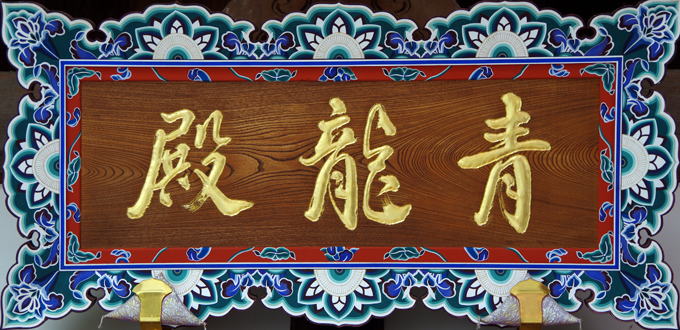 青龍殿